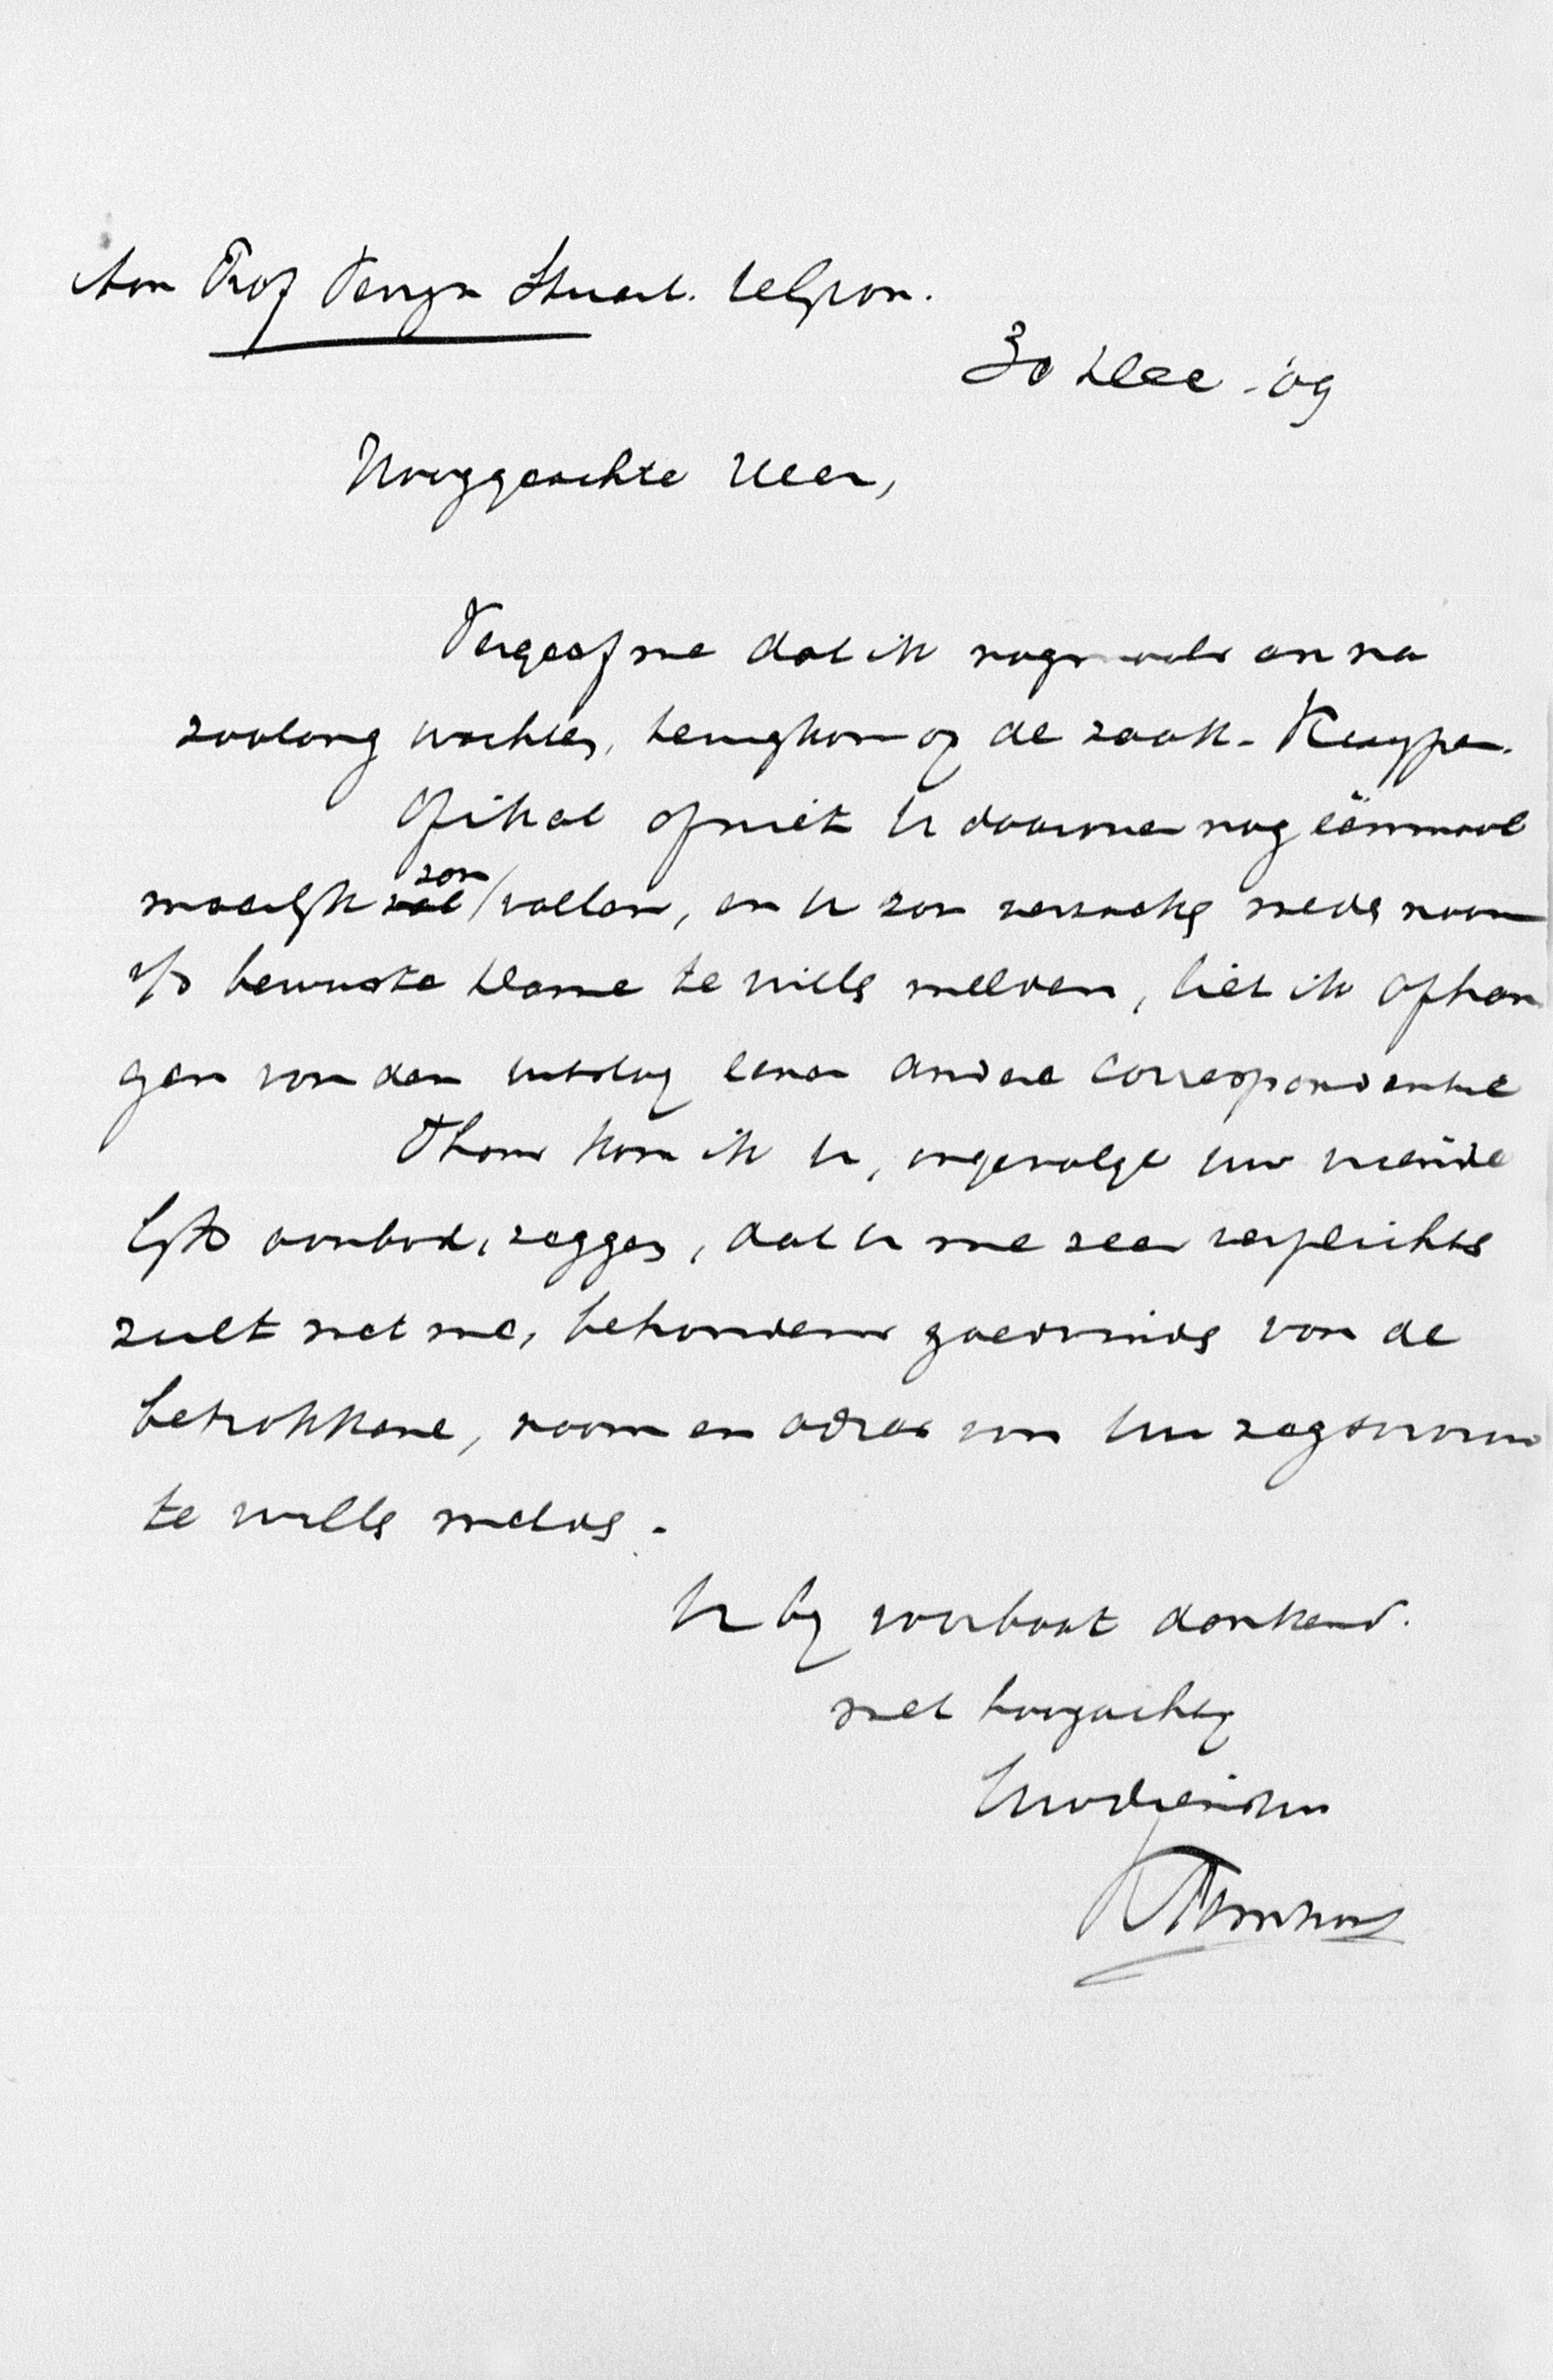 Aan Prof Veryn Stuart.
30 Dec - 09
Hooggeachte Heer,
Vergeef me dat ik nogmaals en na
zoolang wachten, terugkom op de zaak - Kuyper.
Of ik al of niet U daarover nog éénmaal
moeilijk zou vallen, en U zou verzoeken mede naam
bewuste Dame te willen melden, liet ik afhan
gen van den uitslag eener andere correspondentie
Thans kom ik U, ingevolge uw vriende
lijk aanbod, zeggen, dat U me zeer verplichten
zult met me, behoudens goedvinden van de
betrokkene, naam en adres van Uw zegsvrouw
te willen melden.
U bij voorbaat dankend.
met hoogachting
Uw dienstw